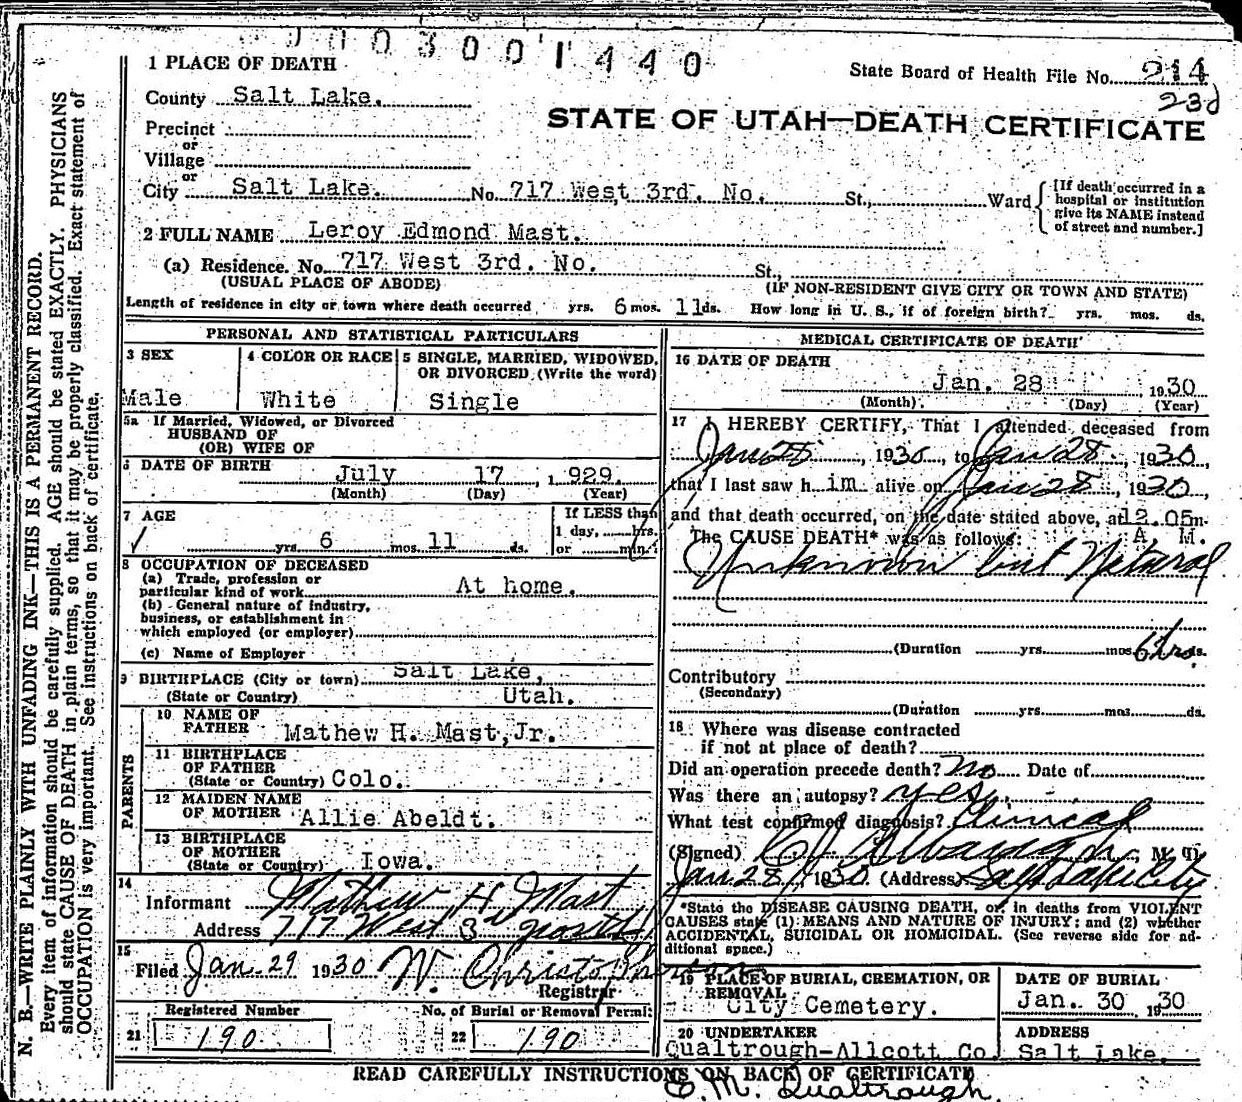 0003001440
State Board of Health File No. 214
23d
STATE OF UTAH—DEATH CERTIFICATE
1 PLACE OF DEATH
County Salt Lake.
Precinct
or
Village
or
City Salt Lake. No. 717 West 3rd. No. St., Ward
[If death occurred in a
hospital or institution
give its NAME instead
of street and number.]
2 FULL NAME Leroy Edmond Mast.
(a) Residence. No. 717 West 3rd. No. St.,
(USUAL PLACE OF ABODE) (IF NON-RESIDENT GIVE CITY OR TOWN AND STATE)
Length of residence in city or town where death occurred yrs. 6 mos. 11 ds. How long in U. S., if of foreign birth? yrs. mos. ds.
PERSONAL AND STATISTICAL PARTICULARS
3 SEX
Male
4 COLOR OR RACE
White
5 SINGLE, MARRIED, WIDOWED,
OR DIVORCED (Write the word)
Single
5a If Married, Widowed, or Divorced
HUSBAND OF
(OR) WIFE OF
6 DATE OF BIRTH July 17 , 1929.
(Month) (Day) (Year)
7 AGE
yrs. 6 mos. 11 ds.
If LESS than
1 day, hrs.
or min.
8 OCCUPATION OF DECEASED
(a) Trade, profession or
particular kind of work At home.
(b) General nature of industry,
business, or establishment in
which employed (or employer)
(c) Name of Employer
9 BIRTHPLACE (City or town) Salt Lake,
(State or Country) Utah.
PARENTS
10 NAME OF
FATHER Mathew H. Mast, Jr.
11 BIRTHPLACE
OF FATHER
(State or Country) Colo.
12 MAIDEN NAME
OF MOTHER Allie Abeldt.
13 BIRTHPLACE
OF MOTHER
(State or Country) Iowa.
14
Informant Mathew H Mast
Address 717 West 3rd north
15
Filed Jan. 29 1930 W. Christopherson
Registrar
Registered Number
21 190
No. of Burial or Removal Permit
22 190
MEDICAL CERTIFICATE OF DEATH
16 DATE OF DEATH
Jan. 28 1930
(Month) (Day) (Year)
17 I HEREBY CERTIFY, That I attended deceased from
Jan 28, 1930, to Jan 28, 1930,
that I last saw h im alive on Jan 28, 1930,
and that death occurred, on the date stated above, at 12.05 m.
The CAUSE DEATH* was as follows: A M.
Unknown but Natural
(Duration yrs. mos. 6 hrs. ds.
Contributory
(Secondary)
(Duration yrs. mos. ds.
18 Where was disease contracted
if not at place of death?
Did an operation precede death? No Date of
Was there an autopsy? yes
What test confirmed diagnosis? Clinical
(Signed) M. D.
Jan 28, 1930 (Address) Salt Lake City
*State the DISEASE CAUSING DEATH, or, in deaths from VIOLENT
CAUSES state (1) MEANS AND NATURE OF INJURY; and (2) whether
ACCIDENTAL, SUICIDAL OR HOMICIDAL. (See reverse side for ad-
ditional space.)
19 PLACE OF BURIAL, CREMATION, OR
REMOVAL
City Cemetery.
DATE OF BURIAL
Jan. 30 1930
20 UNDERTAKER
Qualtrough-Allcott Co.
ADDRESS
Salt Lake.
READ CAREFULLY INSTRUCTIONS ON BACK OF CERTIFICATE
E. M. Qualtrough.
N. B.—WRITE PLAINLY WITH UNFADING INK—THIS IS A PERMANENT RECORD.
Every item of information should be carefully supplied. AGE should be stated EXACTLY. PHYSICIANS
should state CAUSE OF DEATH in plain terms, so that it may be properly classified. Exact statement of
OCCUPATION is very important. See instructions on back of certificate.